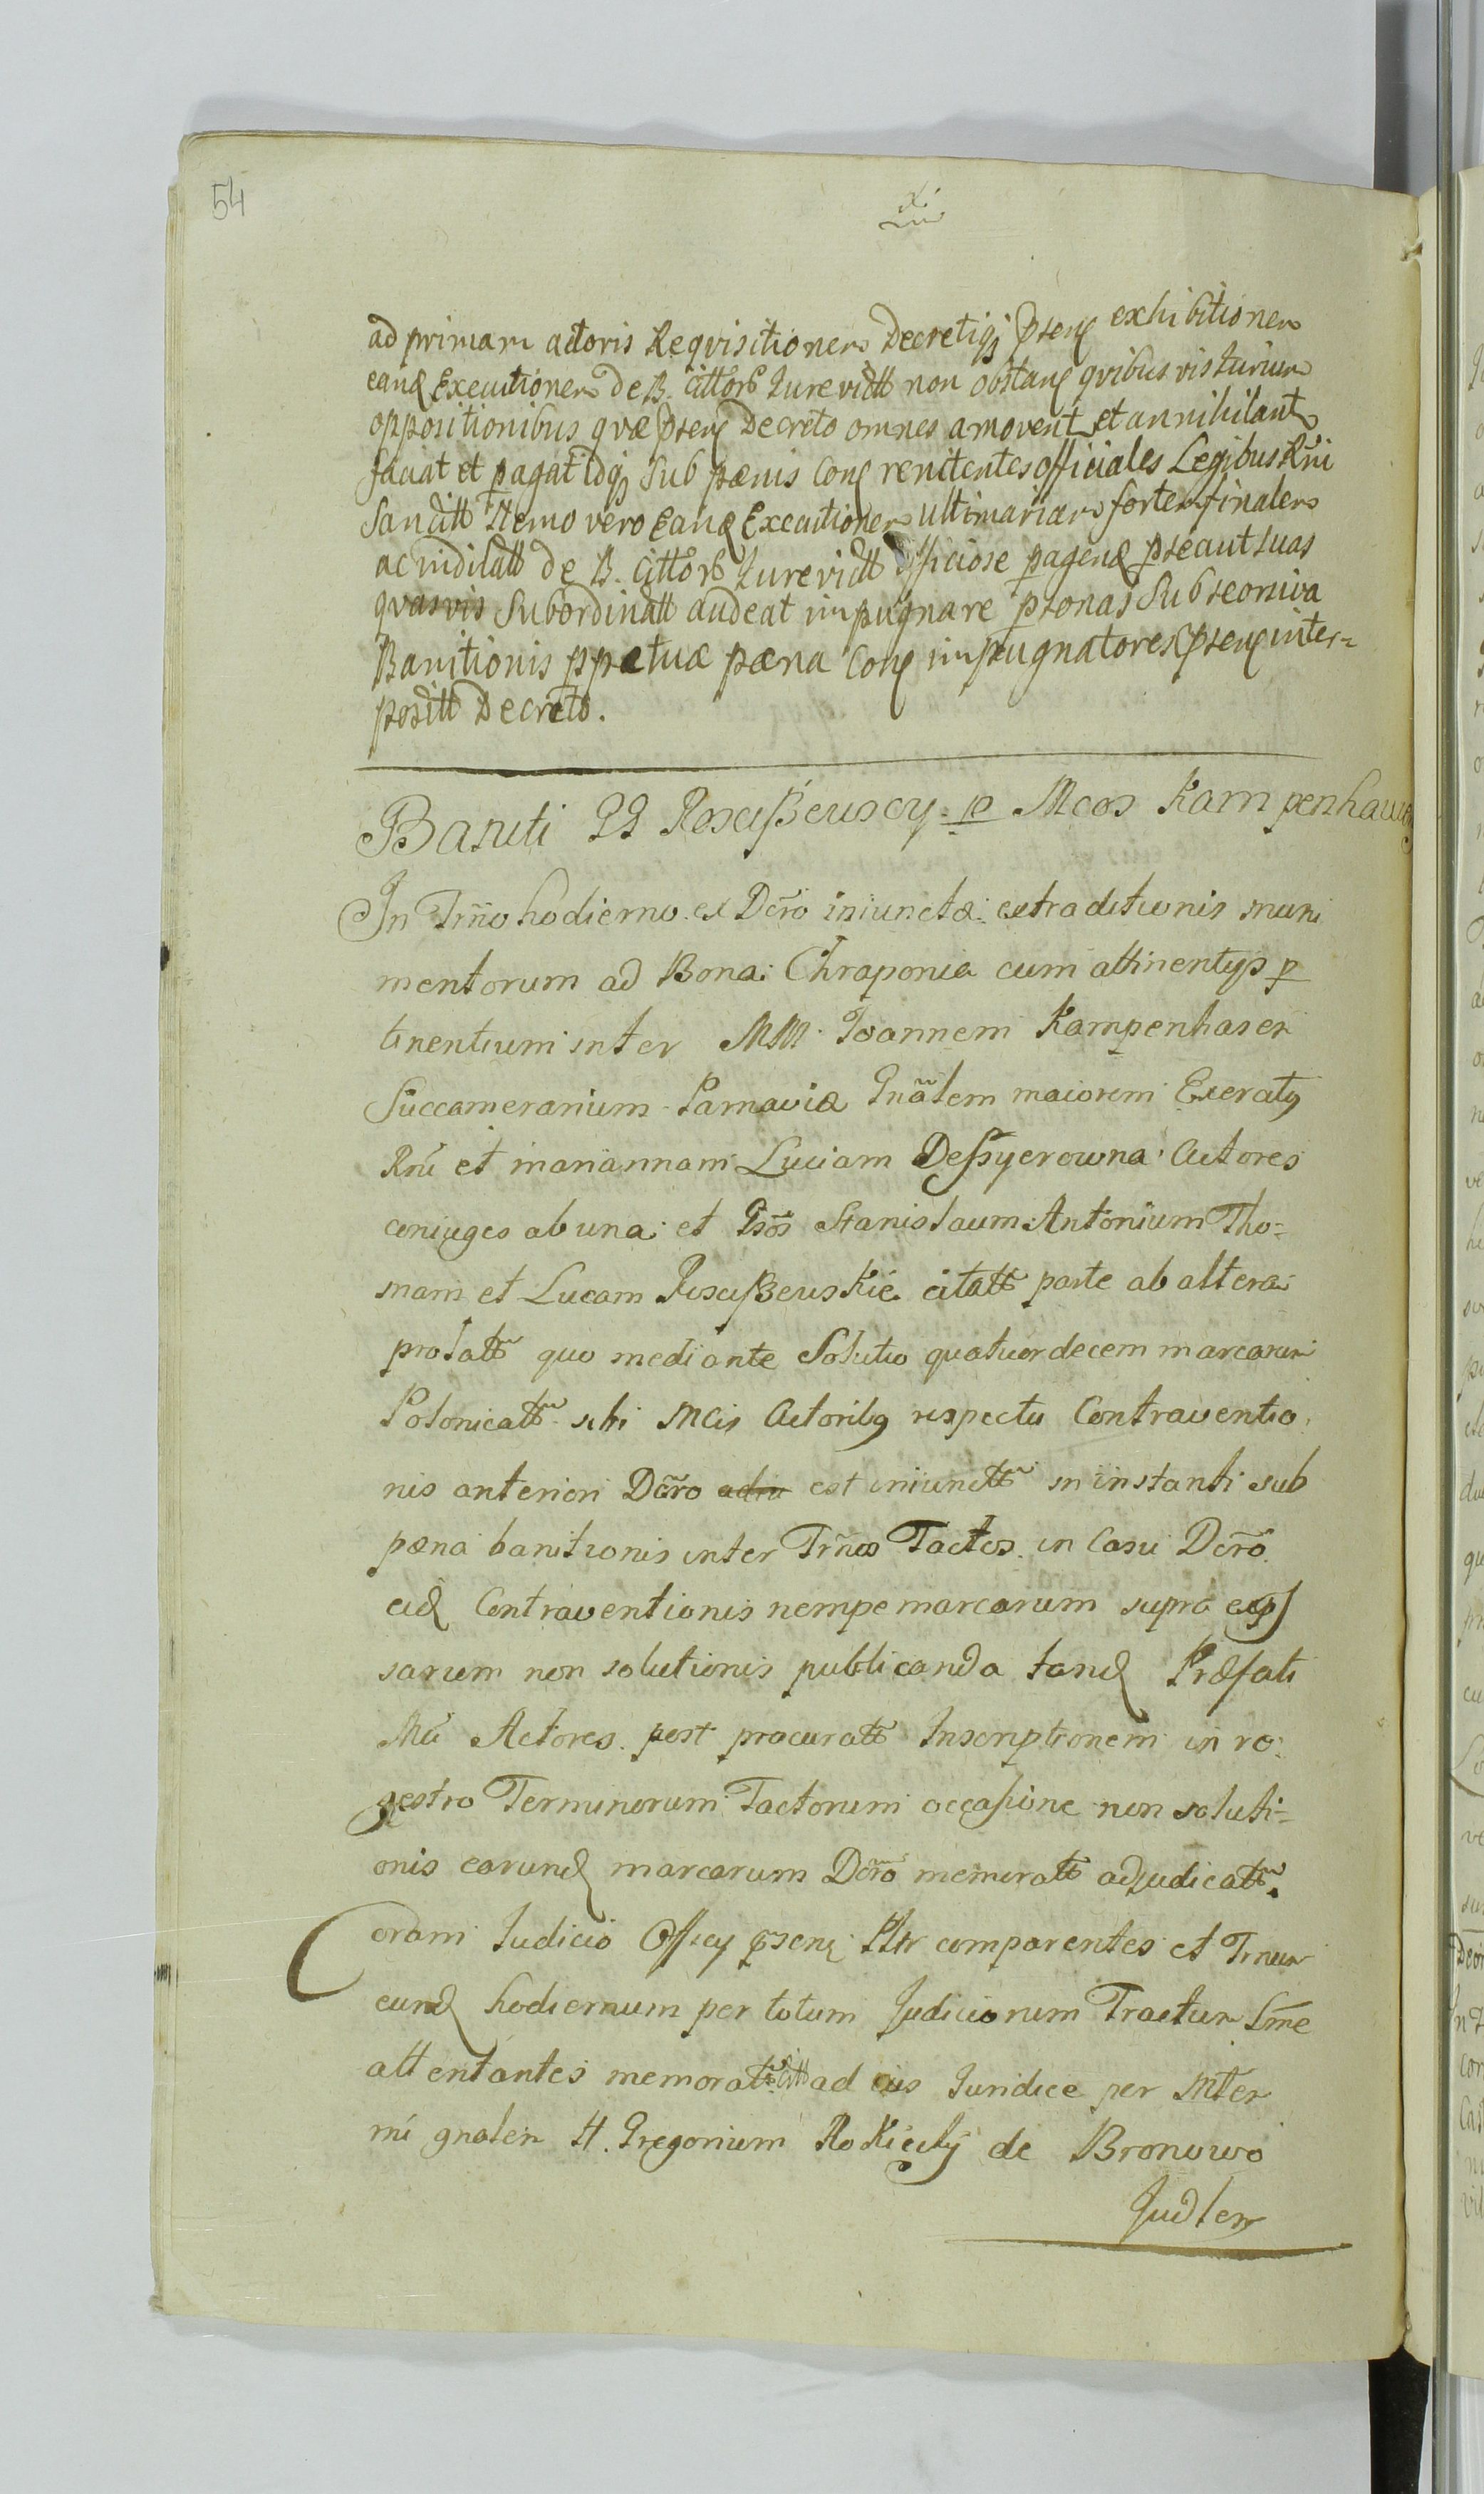 54
ad primam actoris Requisitionem Decretiqȝ pñtis exhibitionem
eand Executionem de B. cittor Jure vict non obstan quibus vis Jurium
oppositionibus quæ pñti Decreto omnes amovent et annihilant
faciat et pagat idqȝ sub pænis con renitentes officiales Legibus Rñi
Sancitt Nemo vero eand Executionem ultimariam fortem finalem
ac de B. cittor Jure vict officiose pagend p se aut suas
quasvis Subordinatt audeat impugnare psonas Sub
Banitionis ppetuæ pæna con impugnatores pñti inter=
positt Decreto.
Baniti GG p Mcos Kampenhau
In Trño hodierno ex Dcro iniunctæ extraditionis muni
mentorum ad Bona Chraponia cum attinentys p
tinentium inter MM Joannem Kampenhasen
Succamerarium Parnaviæ Gñalem maiorem Exercitus
Rni et mariannam Luciam Deszyerowna Actores
coniuges ab una et Gsos Stanislaum Antonium Tho=
mam et Lucam citatt parte ab altera
prolatt quo mediante Solutio quatuordecem marcarum
Polonicatt ubi Mcis Actoribus respectu Contraventio
nis anteriori Dcro est iniunctt in instanti sub
pæna banitionis inter Trños Tactos in Casu Dcro
eid Contraventionis nempe marcarum supra exp
sarum non solutionis publicanda tand Præfati
Mci Actores post procuratt Inscriptionem in re
gestro Terminorum Tactorum occasione non soluti=
onis earund marcarum Dcro memoratt adjudicatt.
Coram Judicio Officy psenti Pltr comparentes et Trnum
eund hodiernum per totum Judiciorum Tractum Lme
attentantes memoratt citt ad eius Juridice per Mter
mi gnalem H. Gregorium Rokicky de Bronowo
Judlem